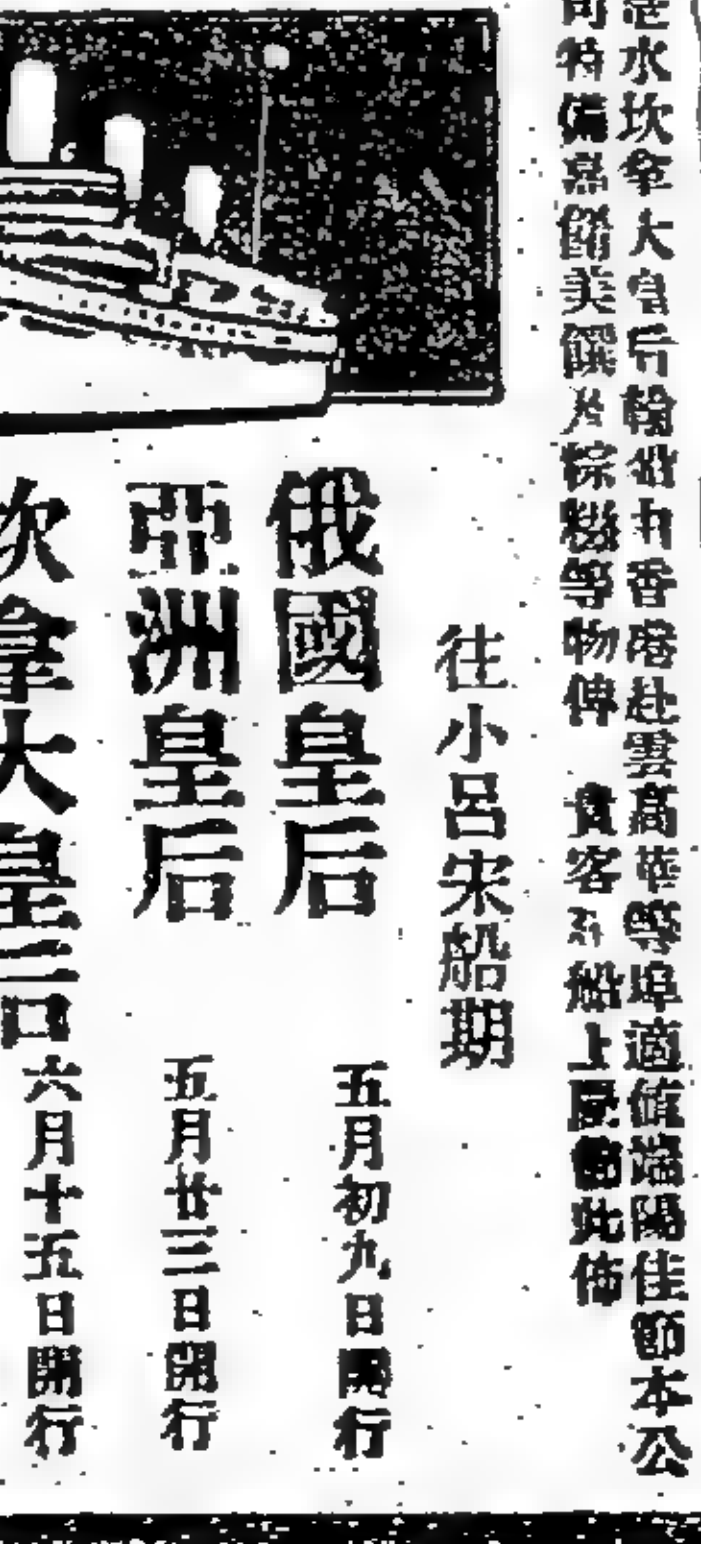 水坎拿大皇后輪船由香港赴雲高華等埠適值端陽佳節本公
司特備嘉餚美饌及棕糉等物俾 貴客在船上慶節此佈
往小呂宋船期
俄國皇后 五月初九日開行
亞洲皇后 五月廿三日開行
坎拿大皇后 六月十五日開行